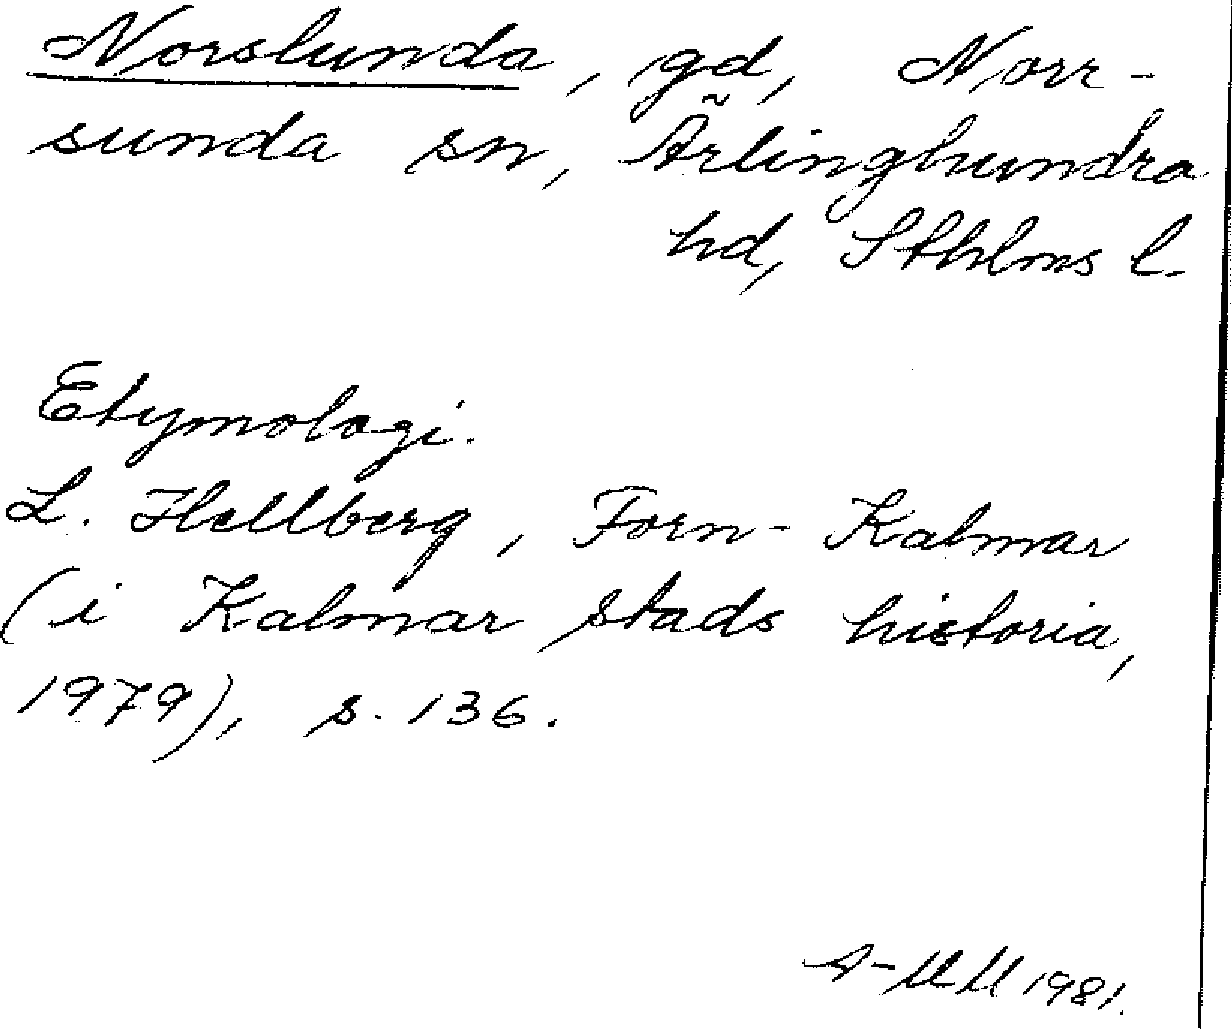 Norslunda, gd, Norr-
sunda sn, Ärlinghundra
hd, Sthlms l.
Etymologi.
L. Hellberg, Forn-Kalmar
(i Kalmar stads historia,
1979), s. 136.
A-MM 1981.